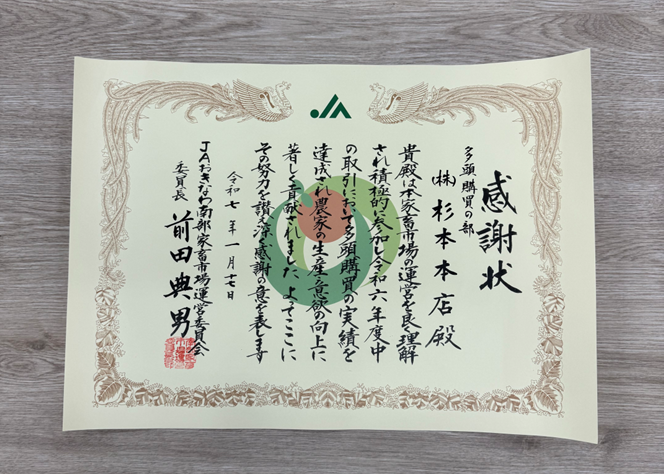 JA
感謝状
多頭購買の部
(株)杉本本店殿
貴殿は本家畜市場の運営を良く理解
され積極的に参加し令和六年度中
の取引において多頭購買の実績を
達成され農家の生産意欲の向上に
著しく貢献されました よってここに
その努力を讃え深く感謝の意を表します
令和七年一月七日
JAおきなわ南部家畜市場運営委員会
委員長 前田典男